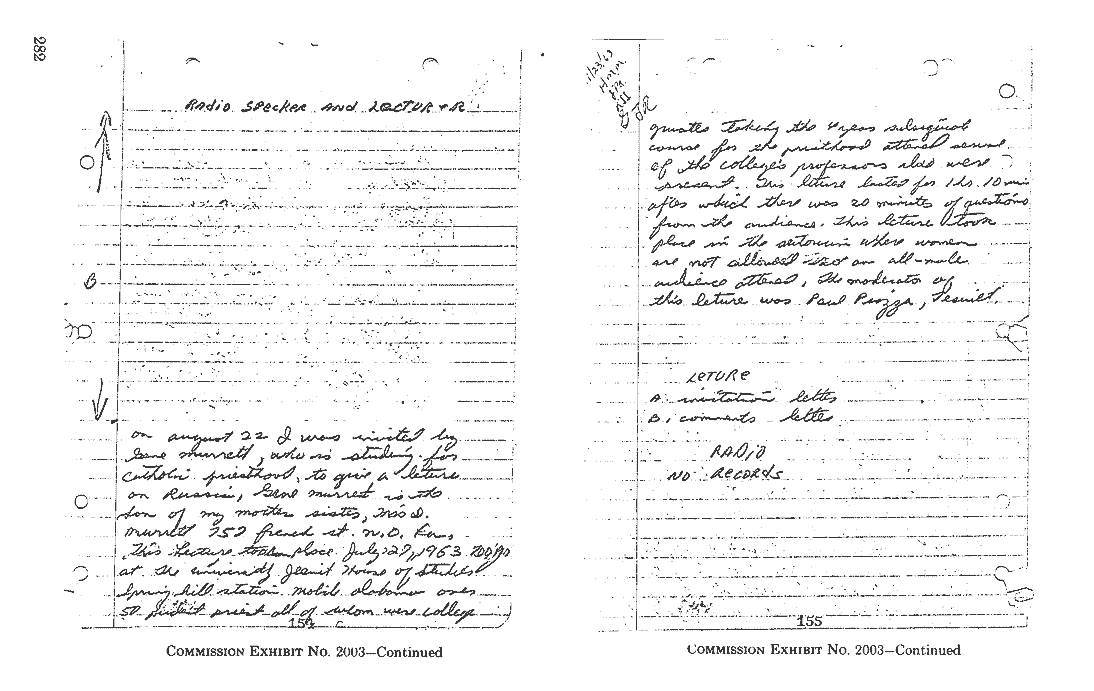 282
RAdio SPecKeR and LecTUReR.
B
on august 22 I was invited by
Gene murrett, who is studing for
catholic priesthood, to give a leture
on Russia, Gene murret is the
son of my mother sister, Miss D.
murrett 757 french st. N.O. La.,
this lecture place July 27, 1963
at the university Jesuit House of studies
spring hill station mobil alabama over
50 priest all of whom were college
154
COMMISSION EXHIBIT NO. 2003—Continued
11/23/63
HMM
JR
quates taking the 4 year
course for the pristhood attered
of the colleges professors also were
present. This leture lasted for 1 hr. 10 min
after which there was 20 minutes of questions
from the audience. This leture took
place in the where women
are not allowed an all-male
audience attered, the moderator of
this leture was Paul Piazza, Jesuit.
LeTURe
A. invitation letter
B. comments letter
RADiO
NO RecoRds
155
COMMISSION EXHIBIT NO. 2003—Continued